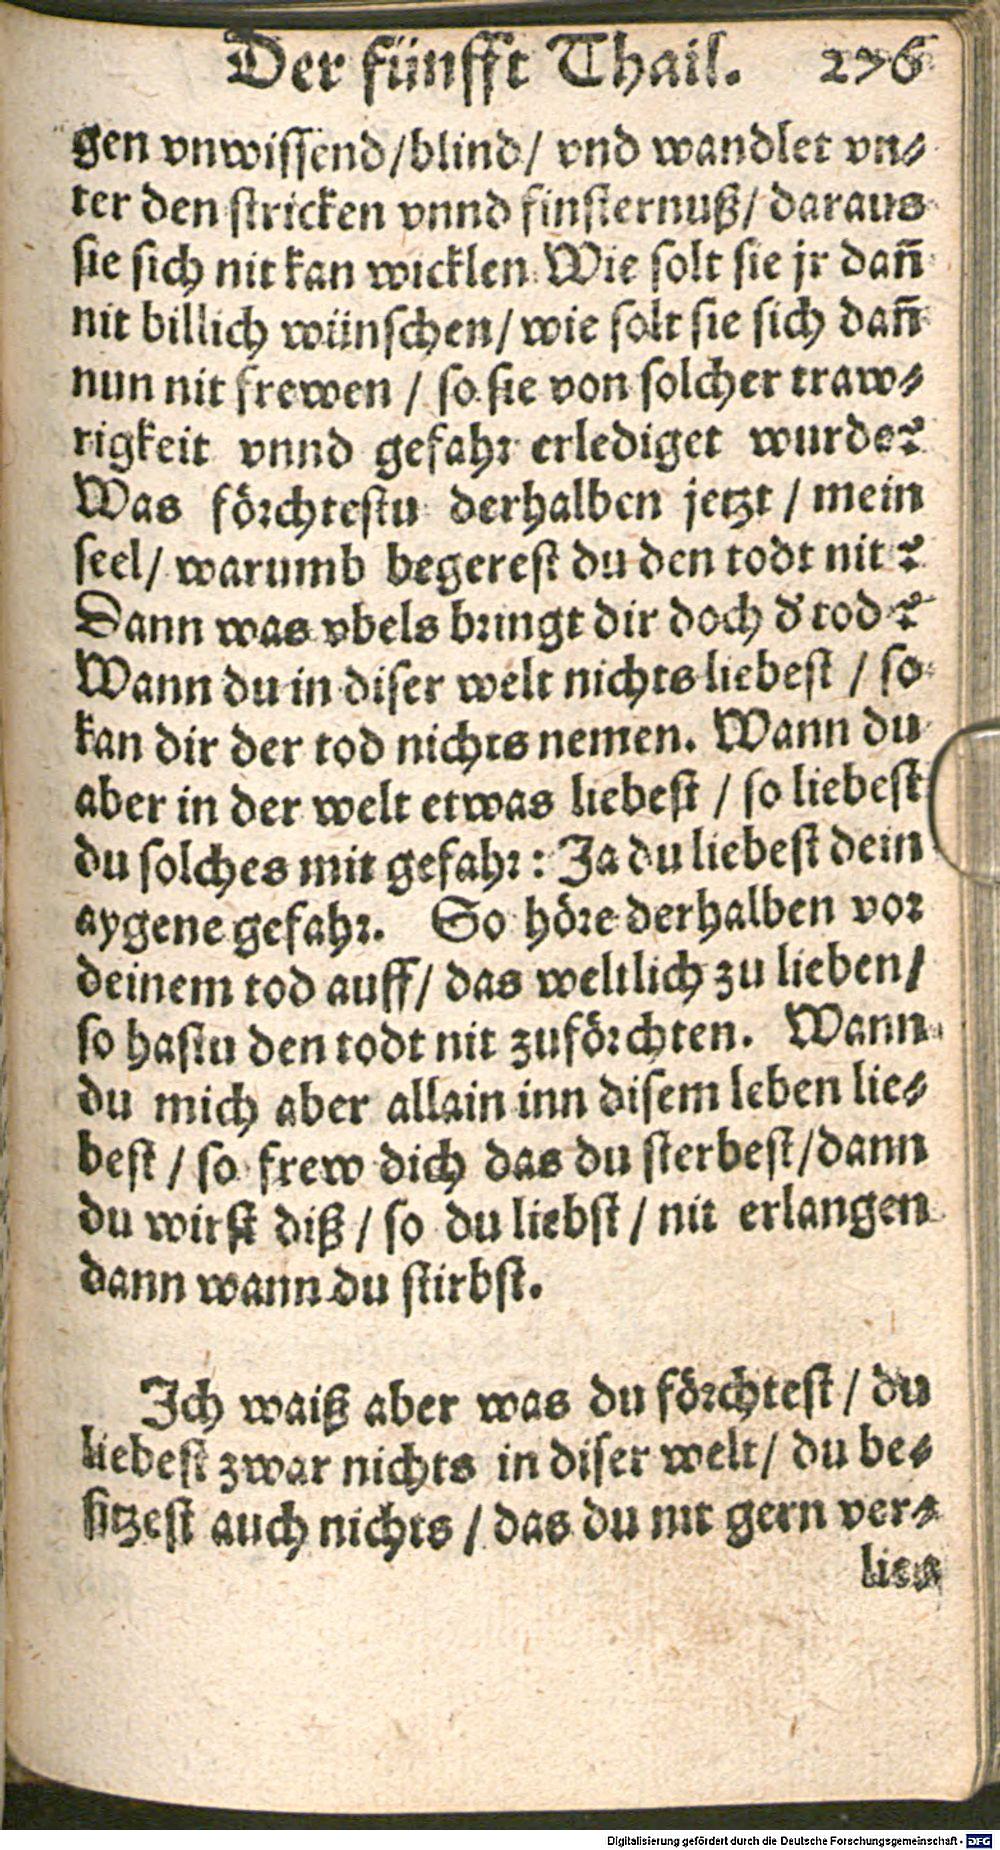 Der fünfft Thail. 276
gen vnwissend/blind/ vnd wandlet vn⸗
ter den stricken vnnd finsternuß/ daraus
sie sich nit kan wicklen. Wie solt sie jr dañ
nit billich wünschen/ wie solt sie sich dañ
nun nit frewen / so sie von solcher traw⸗
rigkeit vnnd gefahr erlediget wurde?
Was förchtestu derhalben jetzt / mein
seel/ warumb begerest du den todt nit?
Dann was vbels bringt dir doch d' tod?
Wann du in diser welt nichts liebest / so
kan dir der tod nichts nemen. Wann du
aber in der welt etwas liebest / so liebest
du solches mit gefahr: Ja du liebest dein
aygene gefahr. So höre derhalben vor
deinem tod auff/ das weltlich zu lieben/
so hastu den todt nit zuförchten. Wann
du mich aber allain inn disem leben lie⸗
best / so frew dich das du sterbest/dann
du wirst diß / so du liebst / nit erlangen
dann wann du stirbst.
Ich waiß aber was du förchtest / du
liebest zwar nichts in diser welt/ du be⸗
sitzest auch nichts / das du nit gern ver⸗
lie⸗
Digitalisierung gefördert durch die Deutsche Forschungsgemeinschaft - DFG